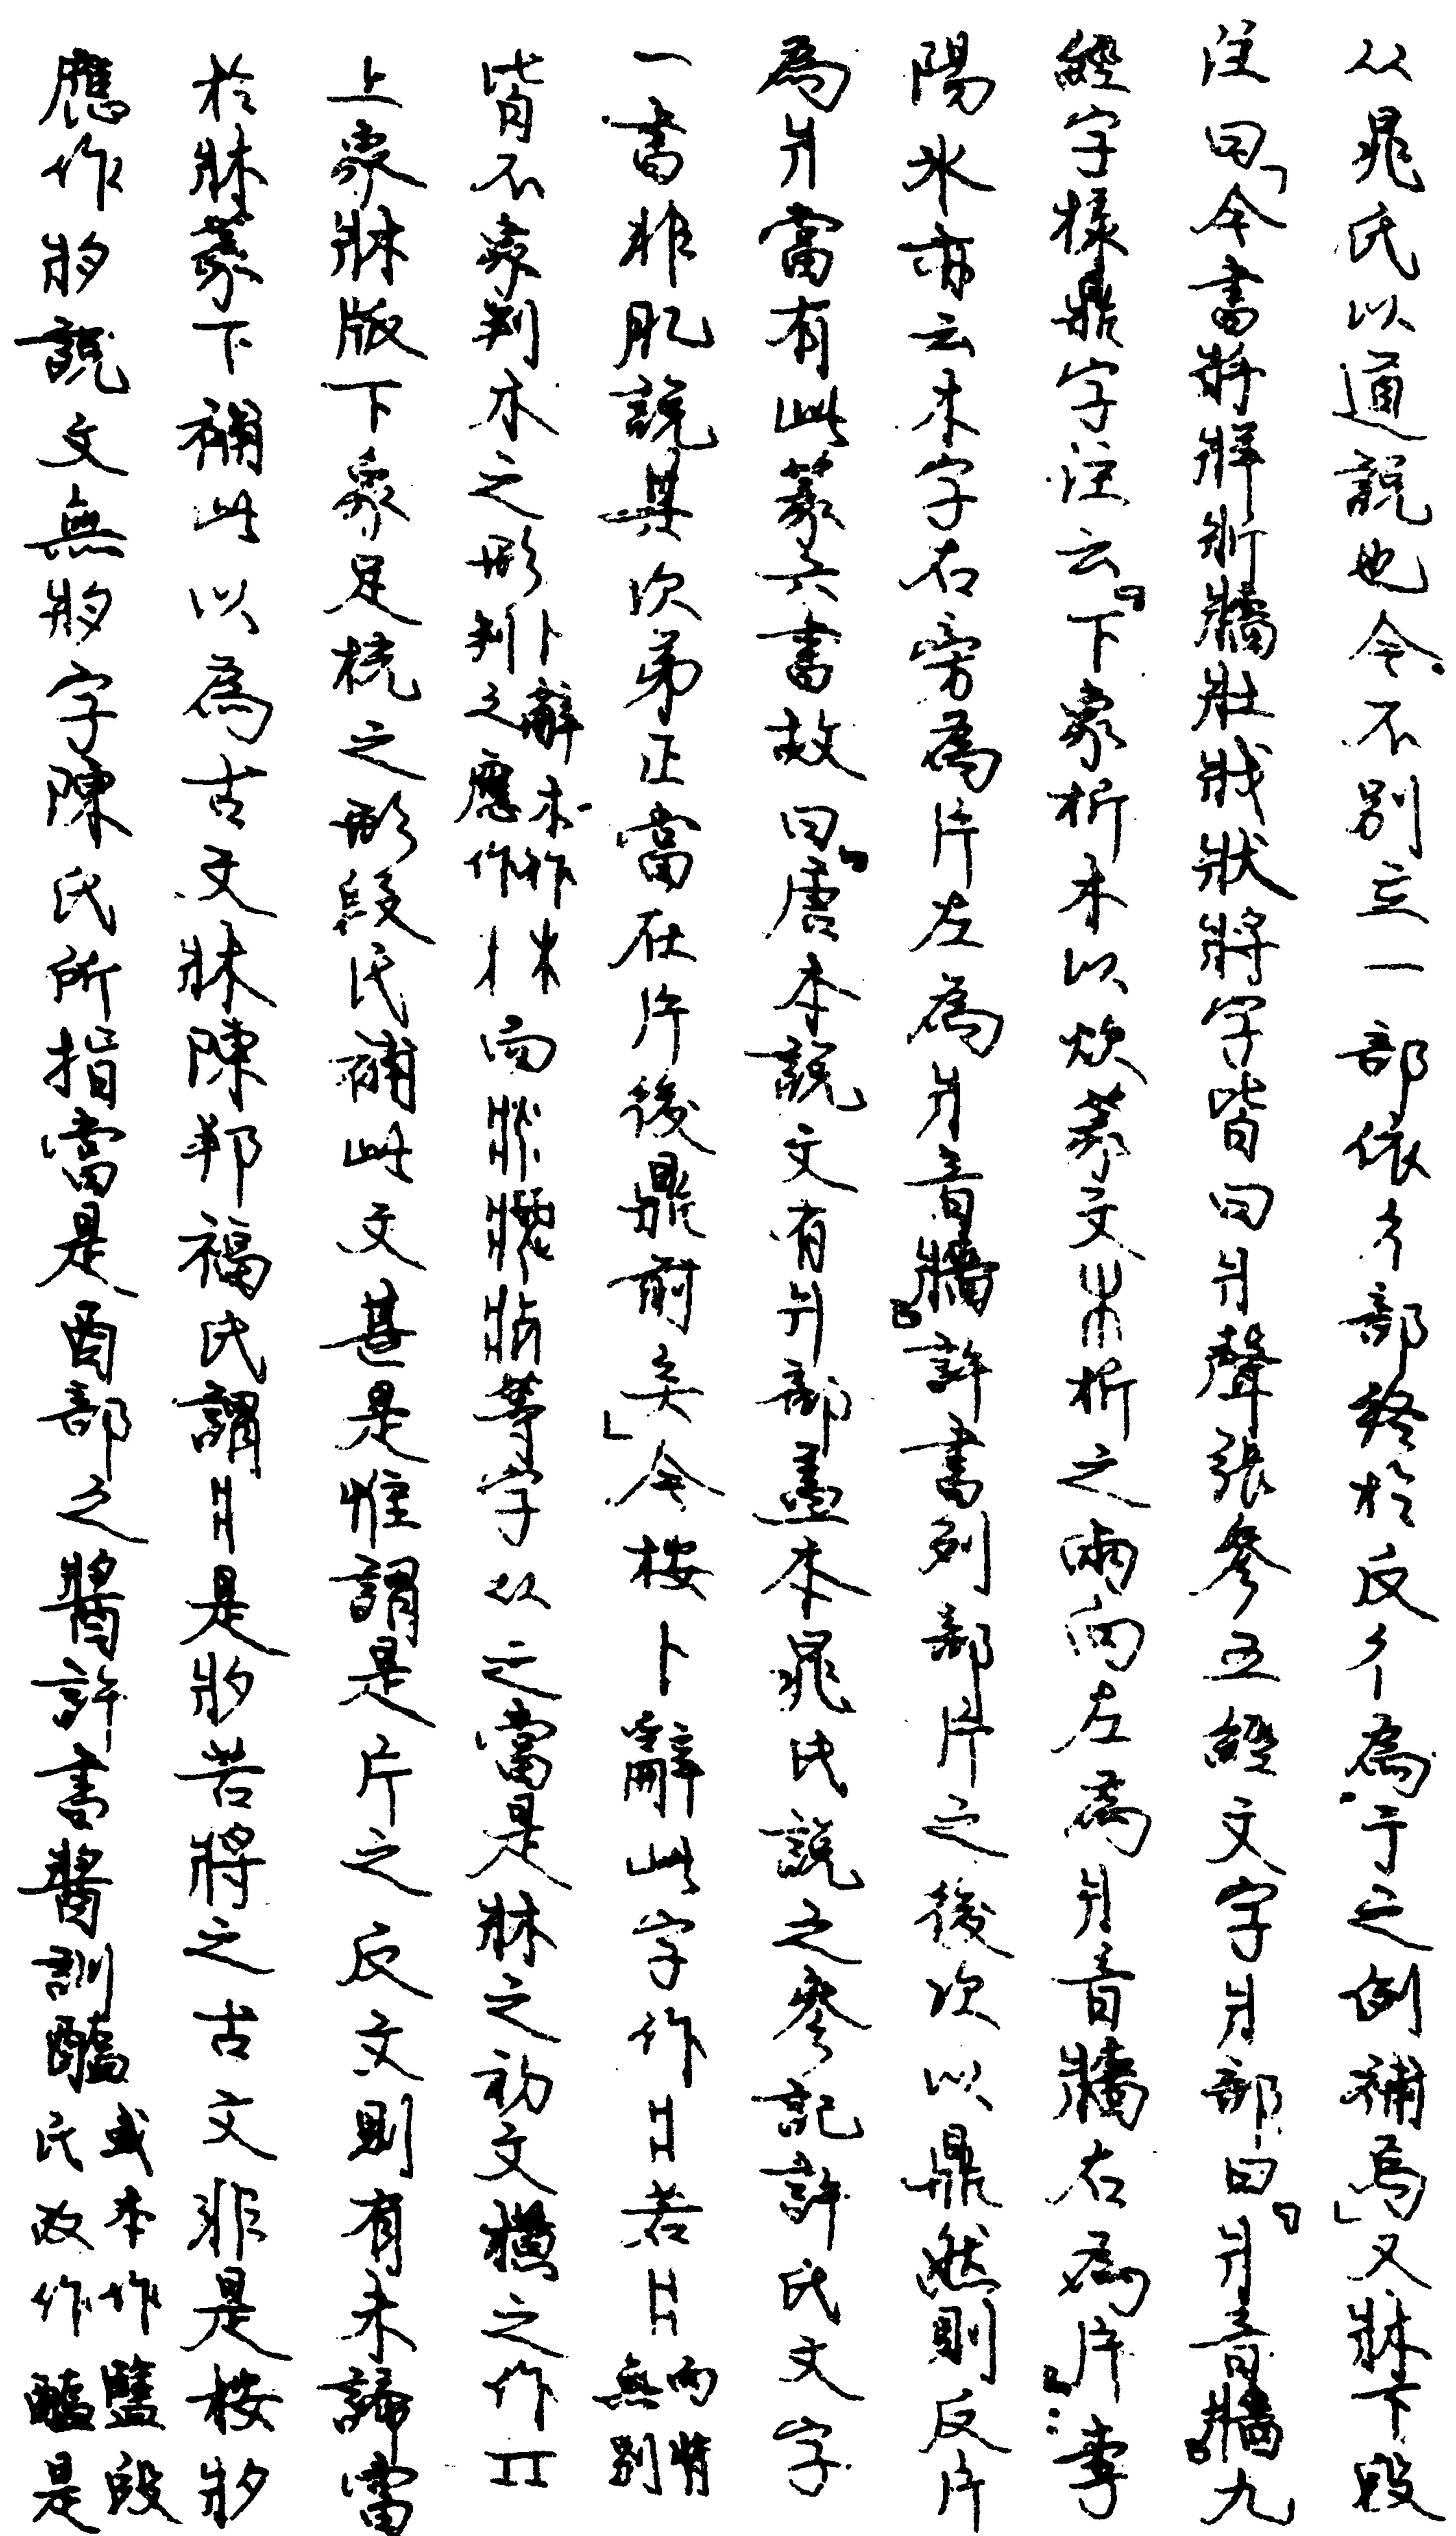 从鼂氏以通說也今不別立一部依彳部終於反彳為亍之例補焉」又牀下段
注曰「今書將牂斨牆壯戕狀將字皆曰爿聲張參五經文字爿部曰『爿音牆』九
經字樣鼎字注云『下象析木以炊篆文𣎳析之兩向左為爿音牆右為片』李
陽冰亦云木字右旁為片左為爿音牆』許書列部片之後次以鼎然則反片
為爿當有此篆六書故曰『唐本說文有爿部蓋本鼂氏說之參記許氏文字
一書非肊說其次弟正當在片後鼎前矣」今按卜辭此字作爿若片兩情無別
皆不象判木之形卜辭木作𣎳判之應作而牀等字从之當是牀之初文橫之作
上象牀版下象足桄之形段氏補此文甚是惟謂是片之反文則有未諦當
於牀篆下補此以為古文牀陳邦福氏謂爿是㸖若將之古文非是按㸖
應作㸖說文無㸖字陳氏所指當是酉部之醬許書醬訓醢或本作盬段氏改作醢是